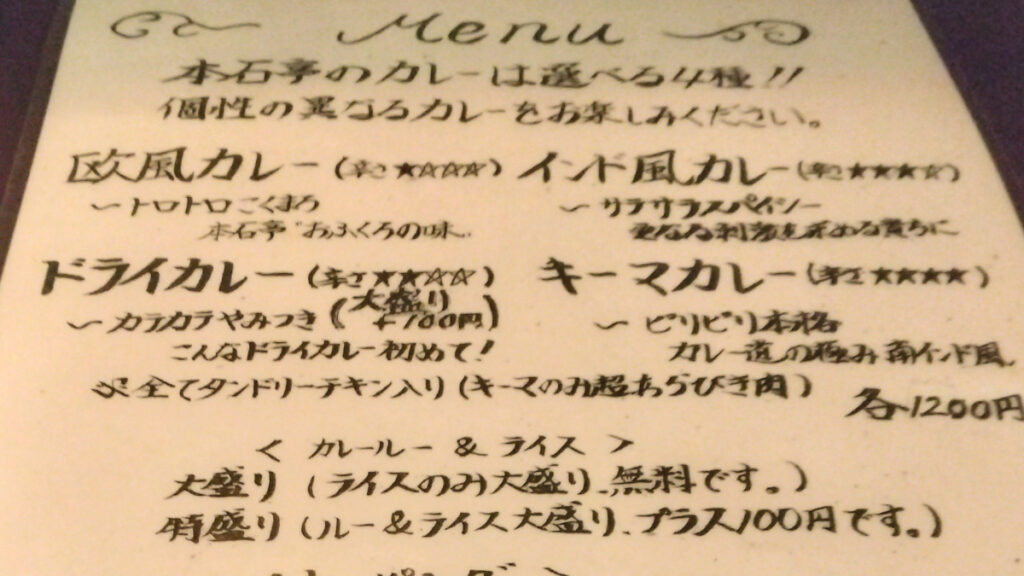 Menu
本石亭のカレーは選べる4種!!
個性の異なるカレーをお楽しみください。
欧風カレー(辛さ★☆☆☆) インド風カレー(辛さ★★★☆)
〜トロトロこくまろ 〜サラサラスパイシー
本石亭"おふくろの味 更なる刺激を求める貴方に
ドライカレー(辛さ★★☆☆) キーマカレー(辛さ★★★★)
〜カラカラやみつき(大盛り+100円) 〜ピリピリ本格
こんなドライカレー初めて! カレー道の極み南インド風
※全てタンドリーチキン入り(キーマのみ超あらびき肉)
各1200円
< カレールー & ライス >
大盛り(ライスのみ大盛り、無料です。)
特盛り(ルー&ライス大盛り、プラス100円です。)